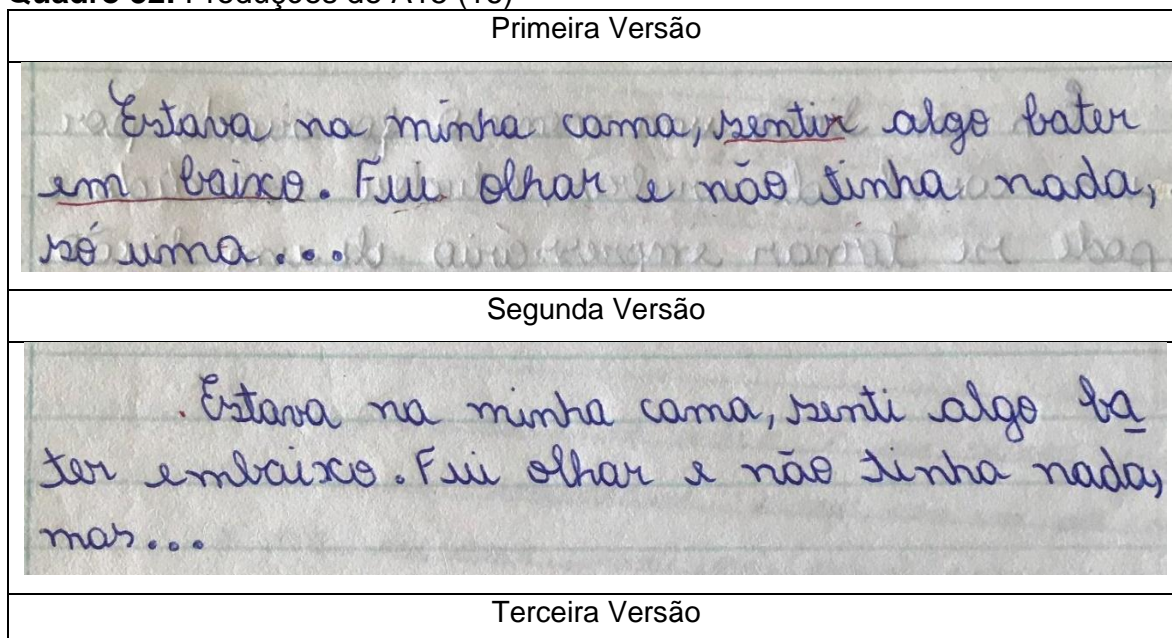 Primeira Versão
Estava na minha cama, sentir algo bater
em baixo. Fui olhar e não tinha nada,
só uma...
Segunda Versão
Estava na minha cama, senti algo ba
ter embaixo. Fui olhar e não tinha nada,
mas...
Terceira Versão